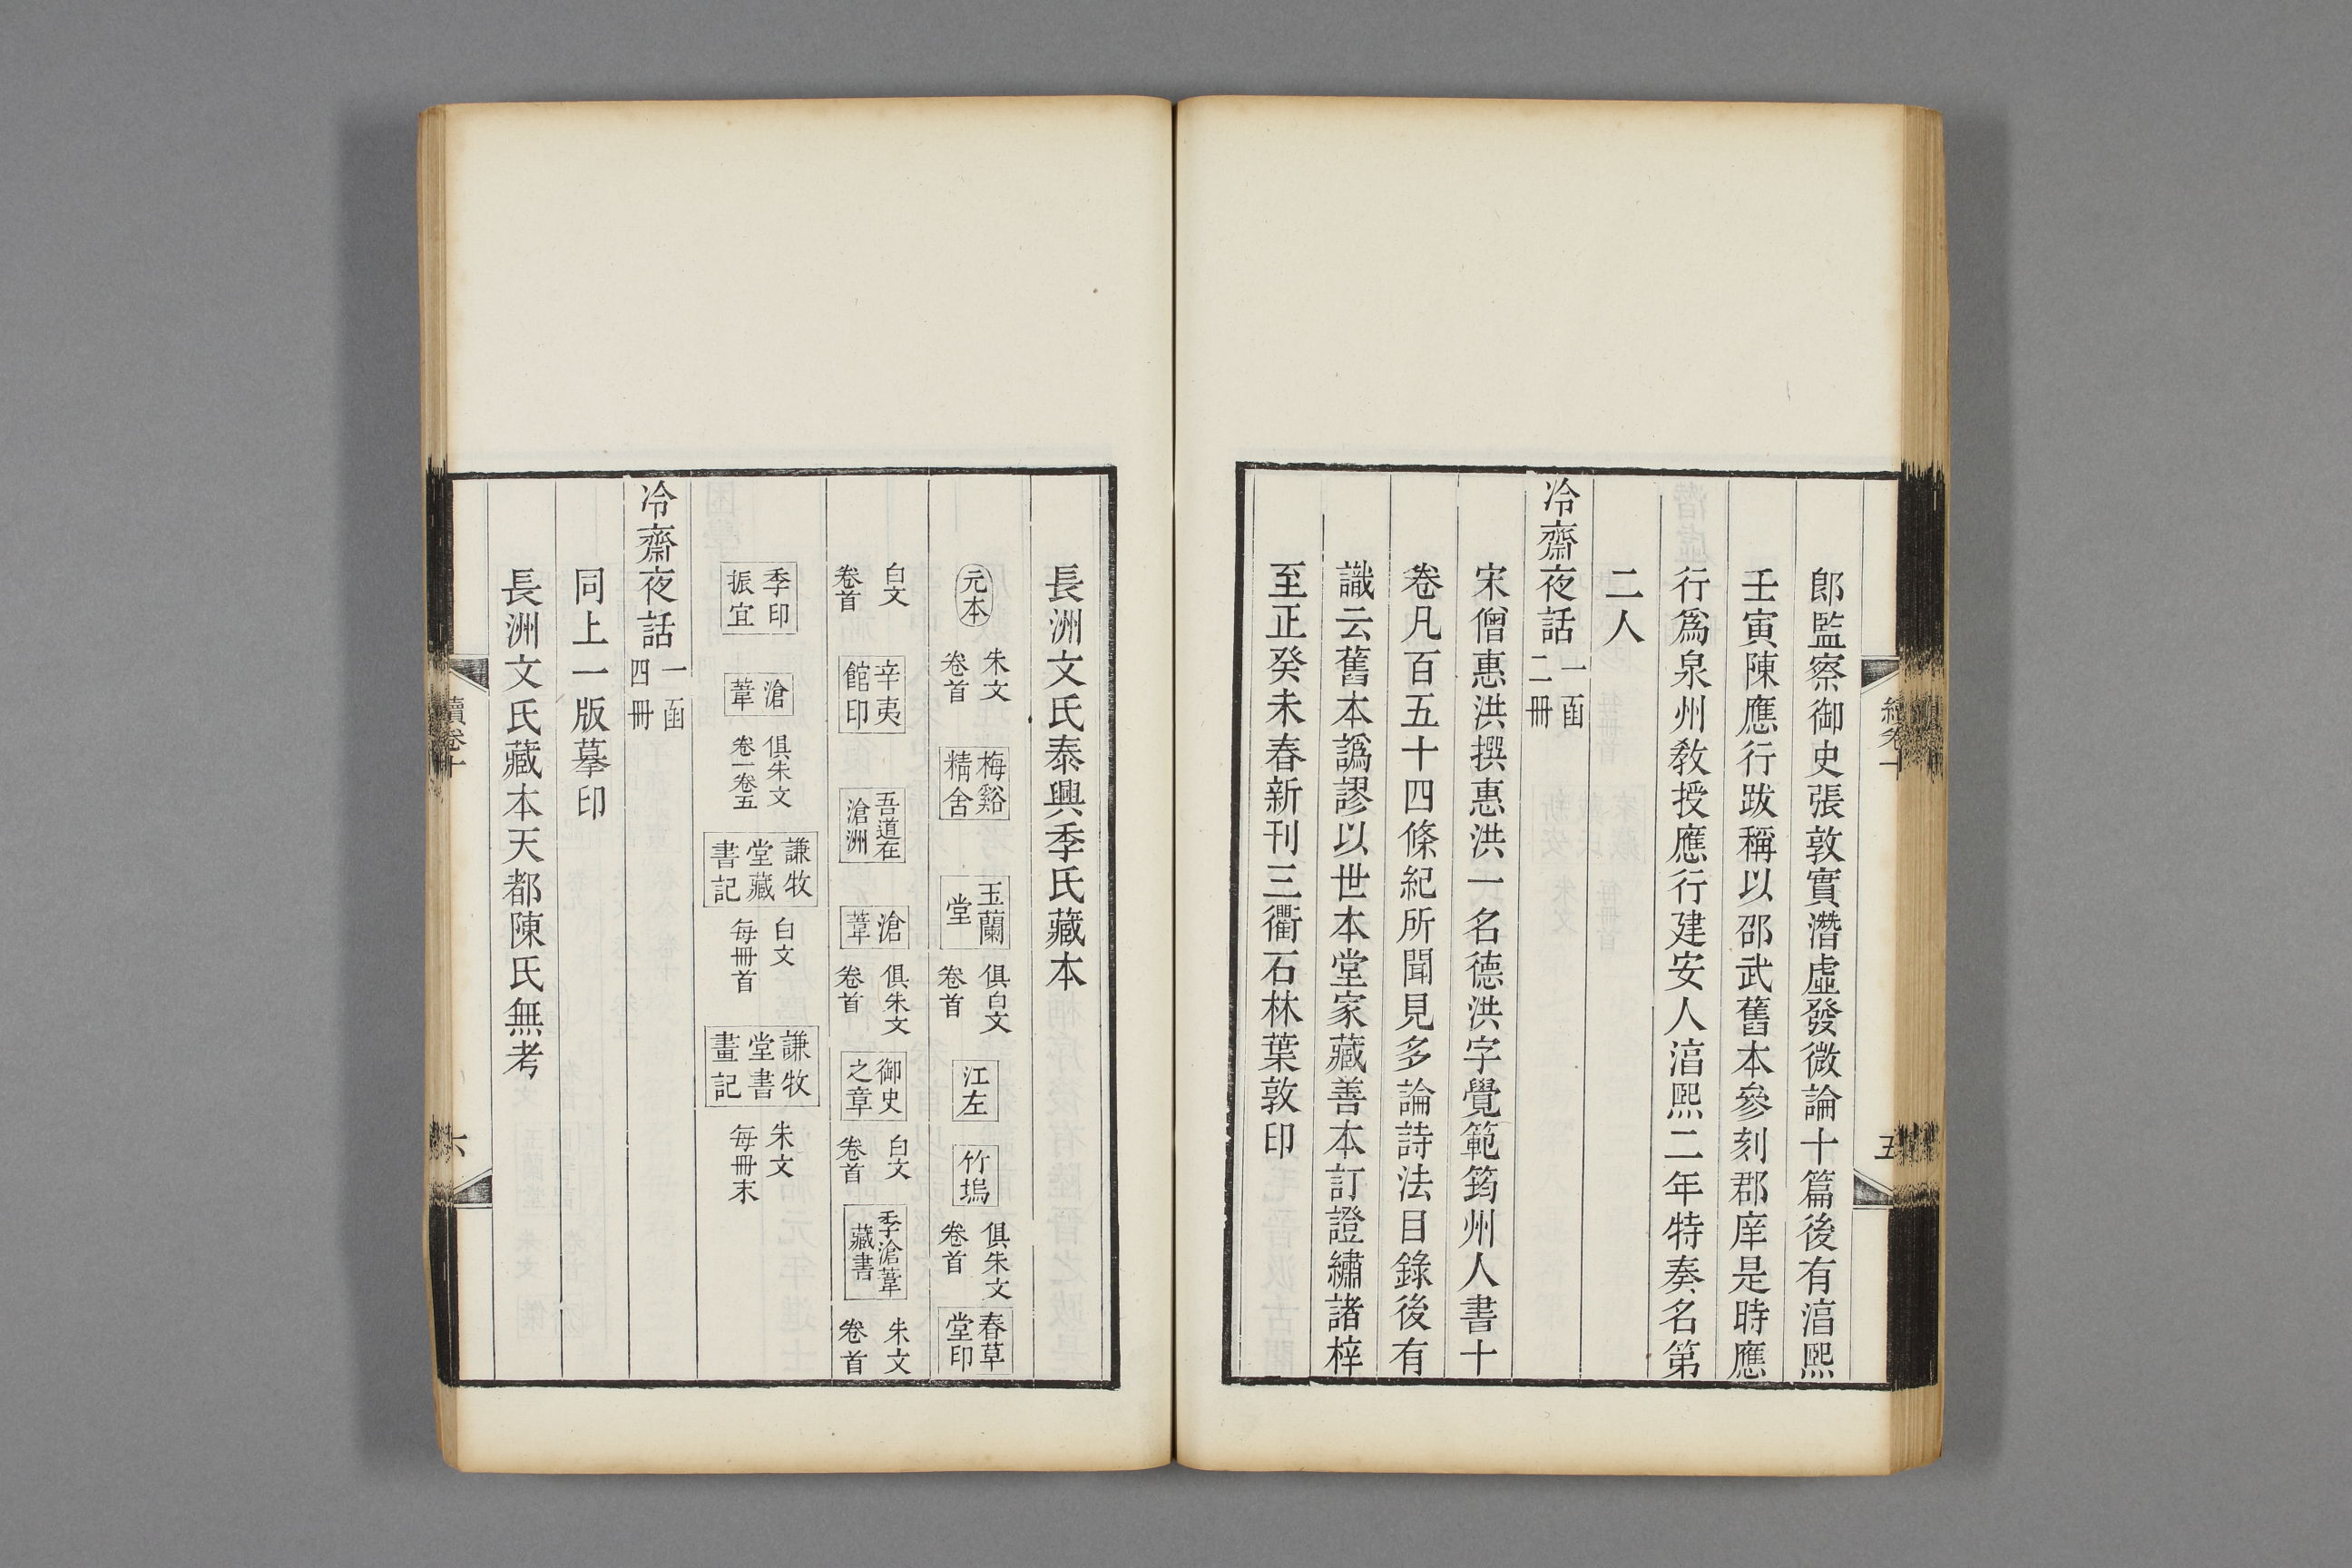 郎監察御史張敦實潛虛發微論十篇後有湻熙
壬寅陳應行跋稱以邵武舊本參刻郡庠是時應
行爲泉州教授應行建安人湻熙二年特奏名第
二人
冷齋夜話一函二冊
宋僧惠洪撰惠洪一名德洪字覺範筠州人書十
卷凡百五十四條紀所聞見多論詩法目錄後有
識云舊本譌謬以世本堂家藏善本訂證繡諸梓
至正癸未春新刊三衢石林葉敦印
長洲文氏泰興季氏藏本
元本 朱文卷首 梅谿精舍 玉蘭堂 俱白文卷首 江左 竹塢 俱朱文卷首 春草堂印
白文卷首 辛夷館印 吾道在滄洲 滄葦 俱朱文卷首 御史之章 白文卷首 季滄葦藏書 朱文卷首
季印振宜 滄葦 俱朱文卷一卷五 謙牧堂藏書記 白文每冊首 謙牧堂書畫記 朱文每冊末
冷齋夜話一函四冊
同上一版摹印
長洲文氏藏本天都陳氏無考
續卷十
五
續卷十
六